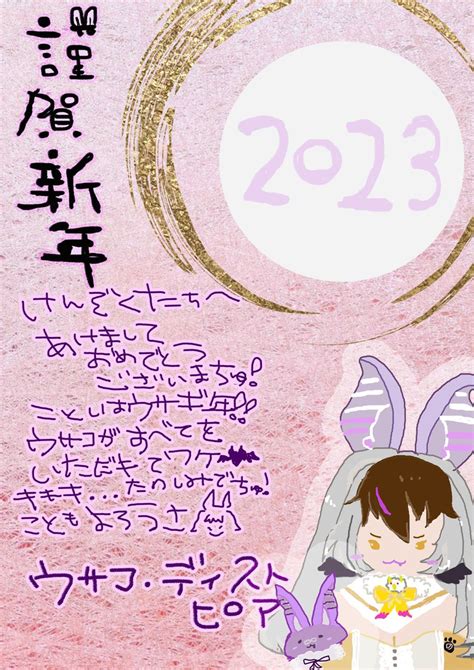 謹賀新年
2023
けんぞくたちへ
あけまして
おめでとう
ございまちゅ!
ことしはウサギ年!!
ウサコがすべてを
いただキでワケ
キキキ...たのしみでちゅ!
ことしもよろうさ
ウサコ・ディスト
ピア